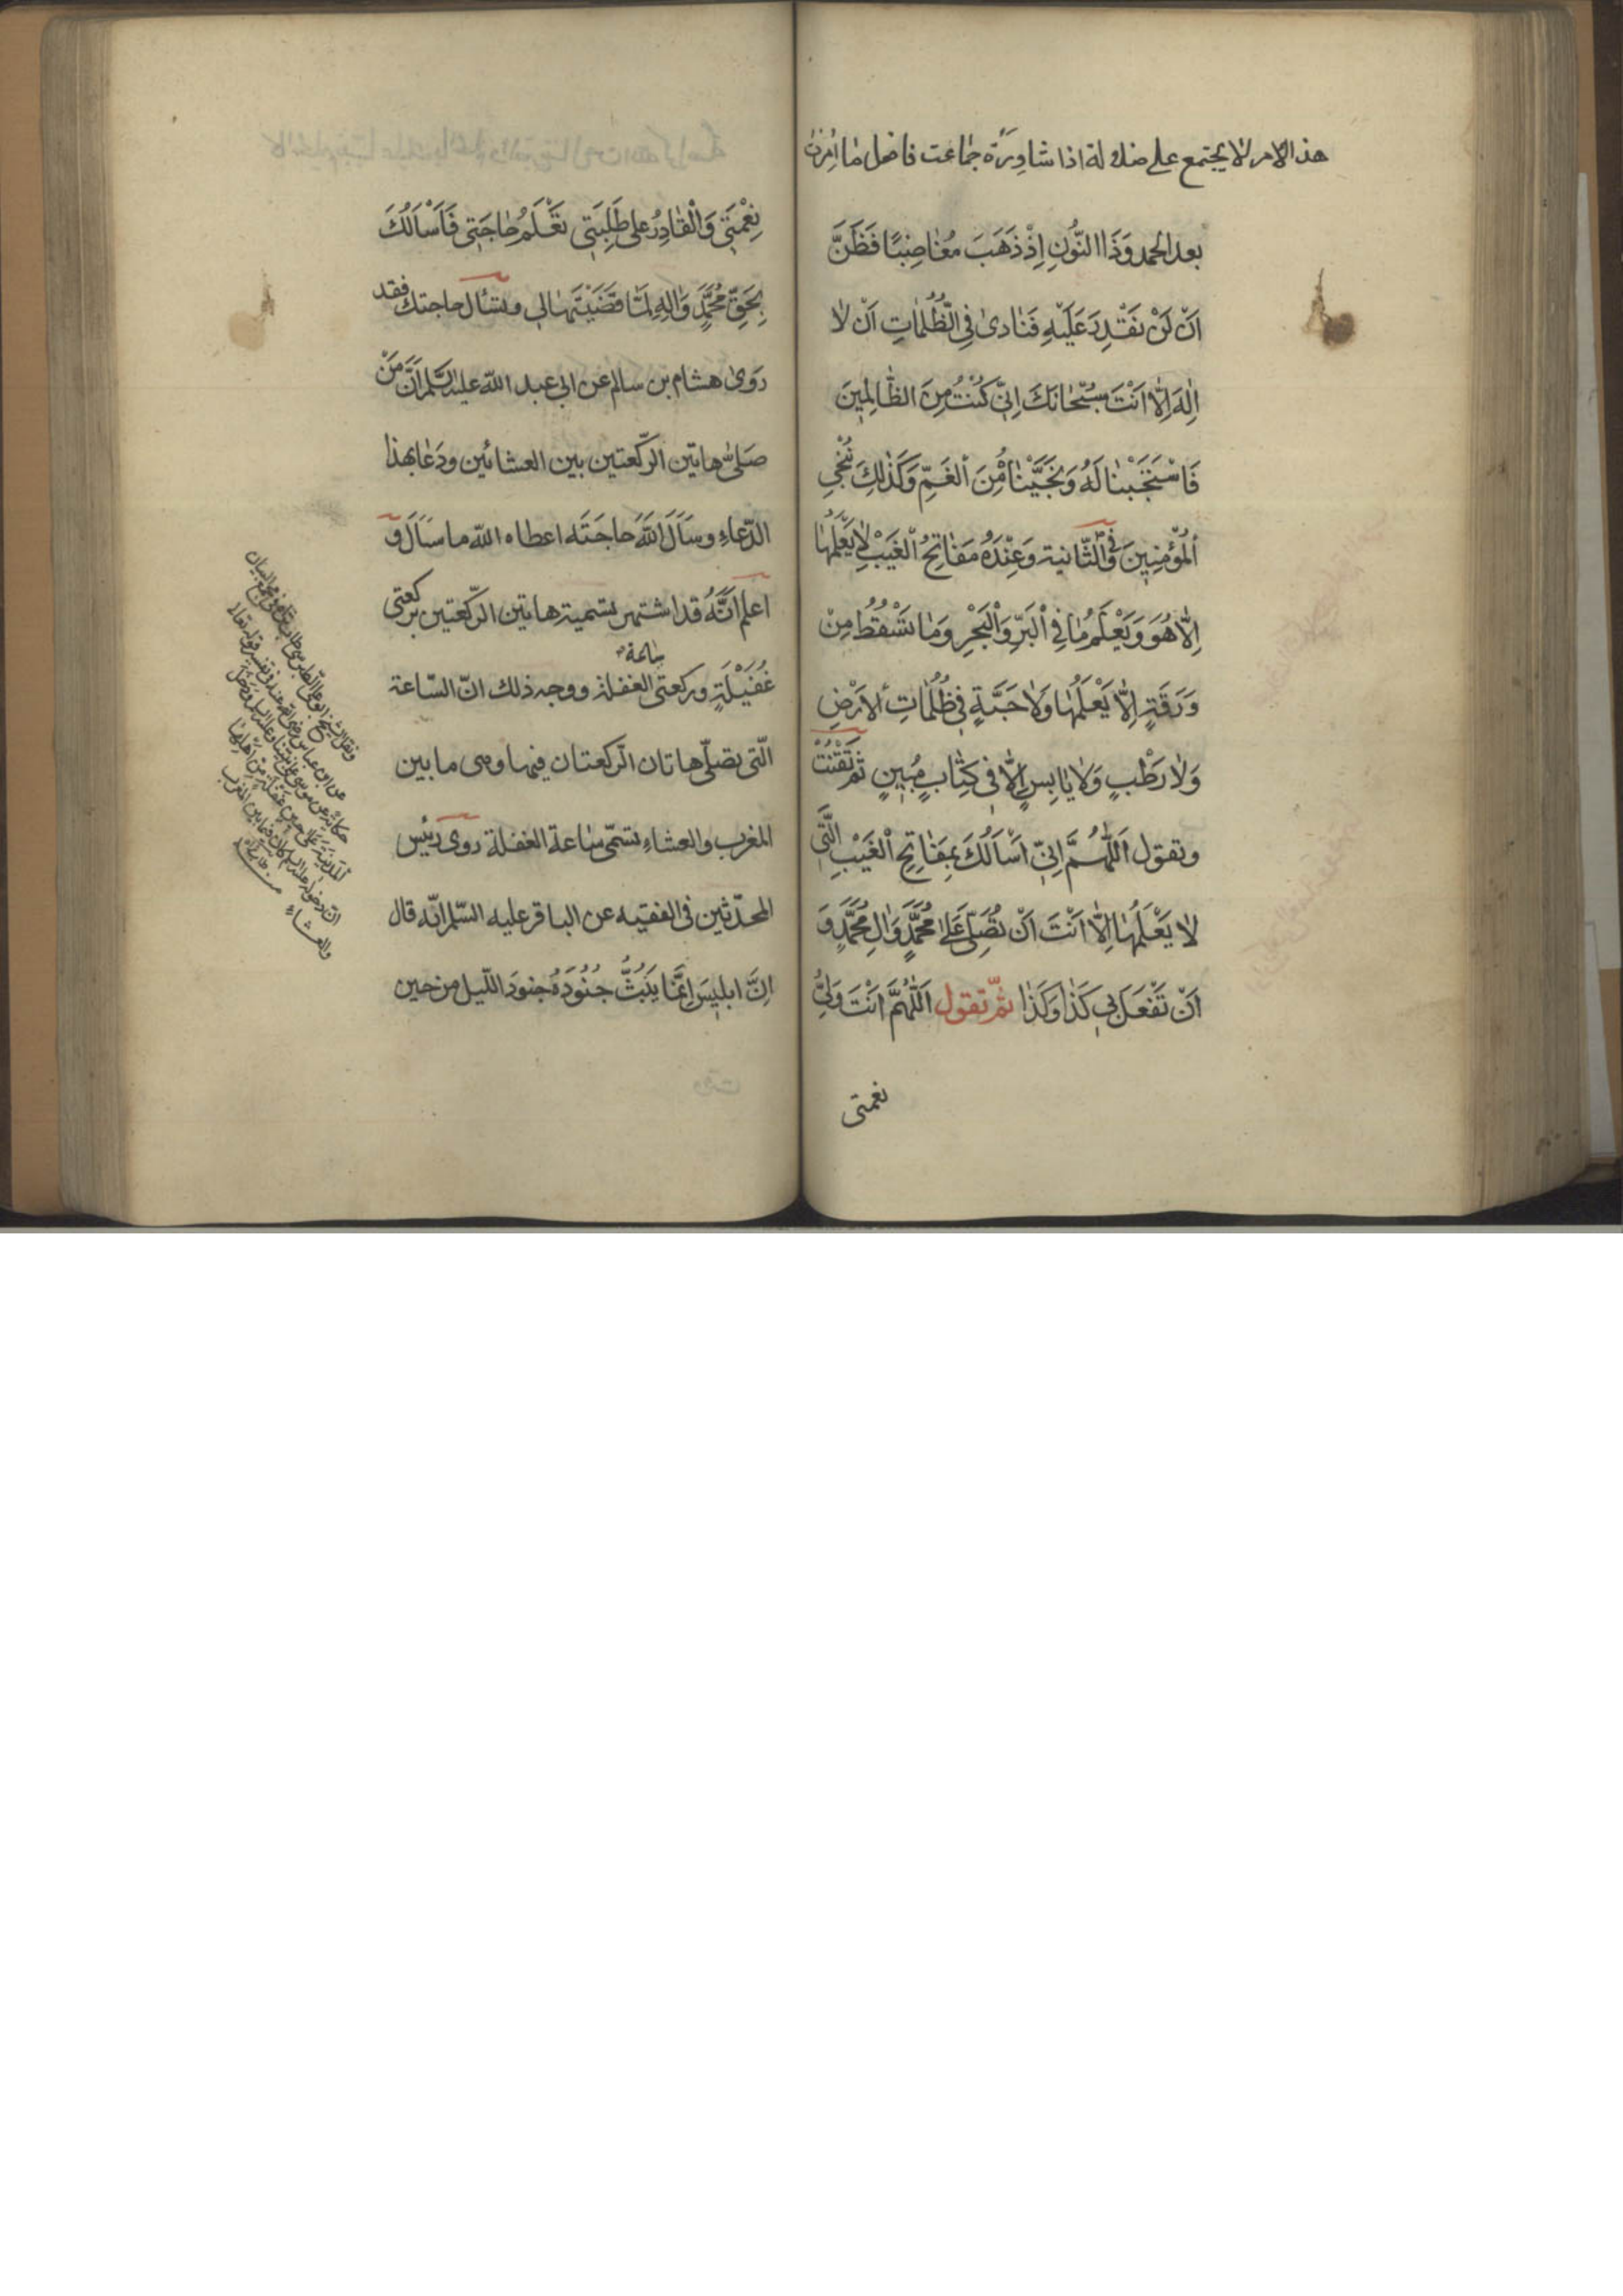 هذ الامر لا يجتمع على ضلالة اذا شاورة جماعت فاضل ما
بعد الحمد وَذَا النُّونِ اِذْ ذَهَبَ مُغٰاضِبًا فَظَنَّ
اَنْ لَنْ نَقْدِرَ عَلَيْهِ فَنٰادىٰ فِي الظُّلُمٰاتِ اَنْ لٰا
اِلٰهَ اِلّٰا اَنْتَ سُبْحٰانَكَ اِنّي كُنْتُ مِنَ الظّٰالِمِينَ
فَاسْتَجَبْنٰا لَهُ وَنَجَّيْنٰاهُ مِنَ الْغَمِّ وَكَذٰلِكَ نُنْجِي
الْمُؤْمِنِينَ وَفي الثّانية وَعِنْدَهُ مَفٰاتِحُ الْغَيْبِ لٰا يَعْلَمُهٰا
اِلّٰا هُوَ وَيَعْلَمُ مٰا فِي الْبَرِّ وَالْبَحْرِ وَمٰا تَسْقُطُ مِنْ
وَرَقَةٍ اِلّٰا يَعْلَمُهٰا وَلٰا حَبَّةٍ فِي ظُلُمٰاتِ الْاَرْضِ
وَلٰا رَطْبٍ وَلٰا يٰابِسٍ اِلّٰا فِي كِتٰابٍ مُبِينٍ ثم تَقْنُتُ
وتقول اَللّٰهُمَّ اِنّي اَسْاَلُكَ بِمَفٰاتِحِ الْغَيْبِ الَّتي
لٰا يَعْلَمُهٰا اِلّٰا اَنْتَ اَنْ تُصَلِّيَ عَلىٰ مُحَمَّدٍ وَاٰلِ مُحَمَّدٍ وَ
اَنْ تَفْعَلَ بي كَذٰا وَكَذٰا ثمّ تقول اَللّٰهُمَّ اَنْتَ وَلِيُّ
نعمتى
نِعْمَتي وَالْقٰادِرُ على طَلِبَتي تَعْلَمُ حٰاجَتي فَاَسْاَلُكَ
بِحَقِّ مُحَمَّدٍ وَاٰلِهِ لَمّٰا قَضَيْتَهٰا لي وتسأل حاجتك فقد
رَوىٰ هشام بن سالم عن ابي عبد اللّه عليه السّلم اَنَّ مَنْ
صَلىّٰ هاتين الرّكعتين بين العشائين ودَعٰا بهذا
الدّعاءِ وسَاَلَ اللّٰهَ حاجَتَه اعطاه اللّه ما سَاَلَ وَ
اعلم اَنَّهُ قد اشتهر تسمية هاتين الرّكعتين بركعتى
غُفَيْلَةٍ وركعتى ساعة الغفلة ووجه ذلك انّ السّاعة
الّتى تصلّى هاتان الرّكعتان فيها وهى ما بين
المغرب والعشاءِ تسمّى سٰاعة الغفلة روى رئيس
المحدّثين فى الفقيه عن الباقر عليه السّلم انّه قال
اِنَّ ابليسَ اِنَّمٰا يَبُثُّ جُنُوْدَهُ جنودَ اللّيل من حين
ونقل الشيخ ابو على الطبرسى طاب ثراه فى مجمع البيان
عن ابن عباس رضى الله عنه فى تفسير قوله تعالى
حكاية عن موسى على نبينا وعليه السلم ودَخَلَ
المدينةَ عَلىٰ حين غفلةٍ من اَهلِهٰا
انّ دخوله عليه السلم كان فيما بين المغرب
والعشاءِ